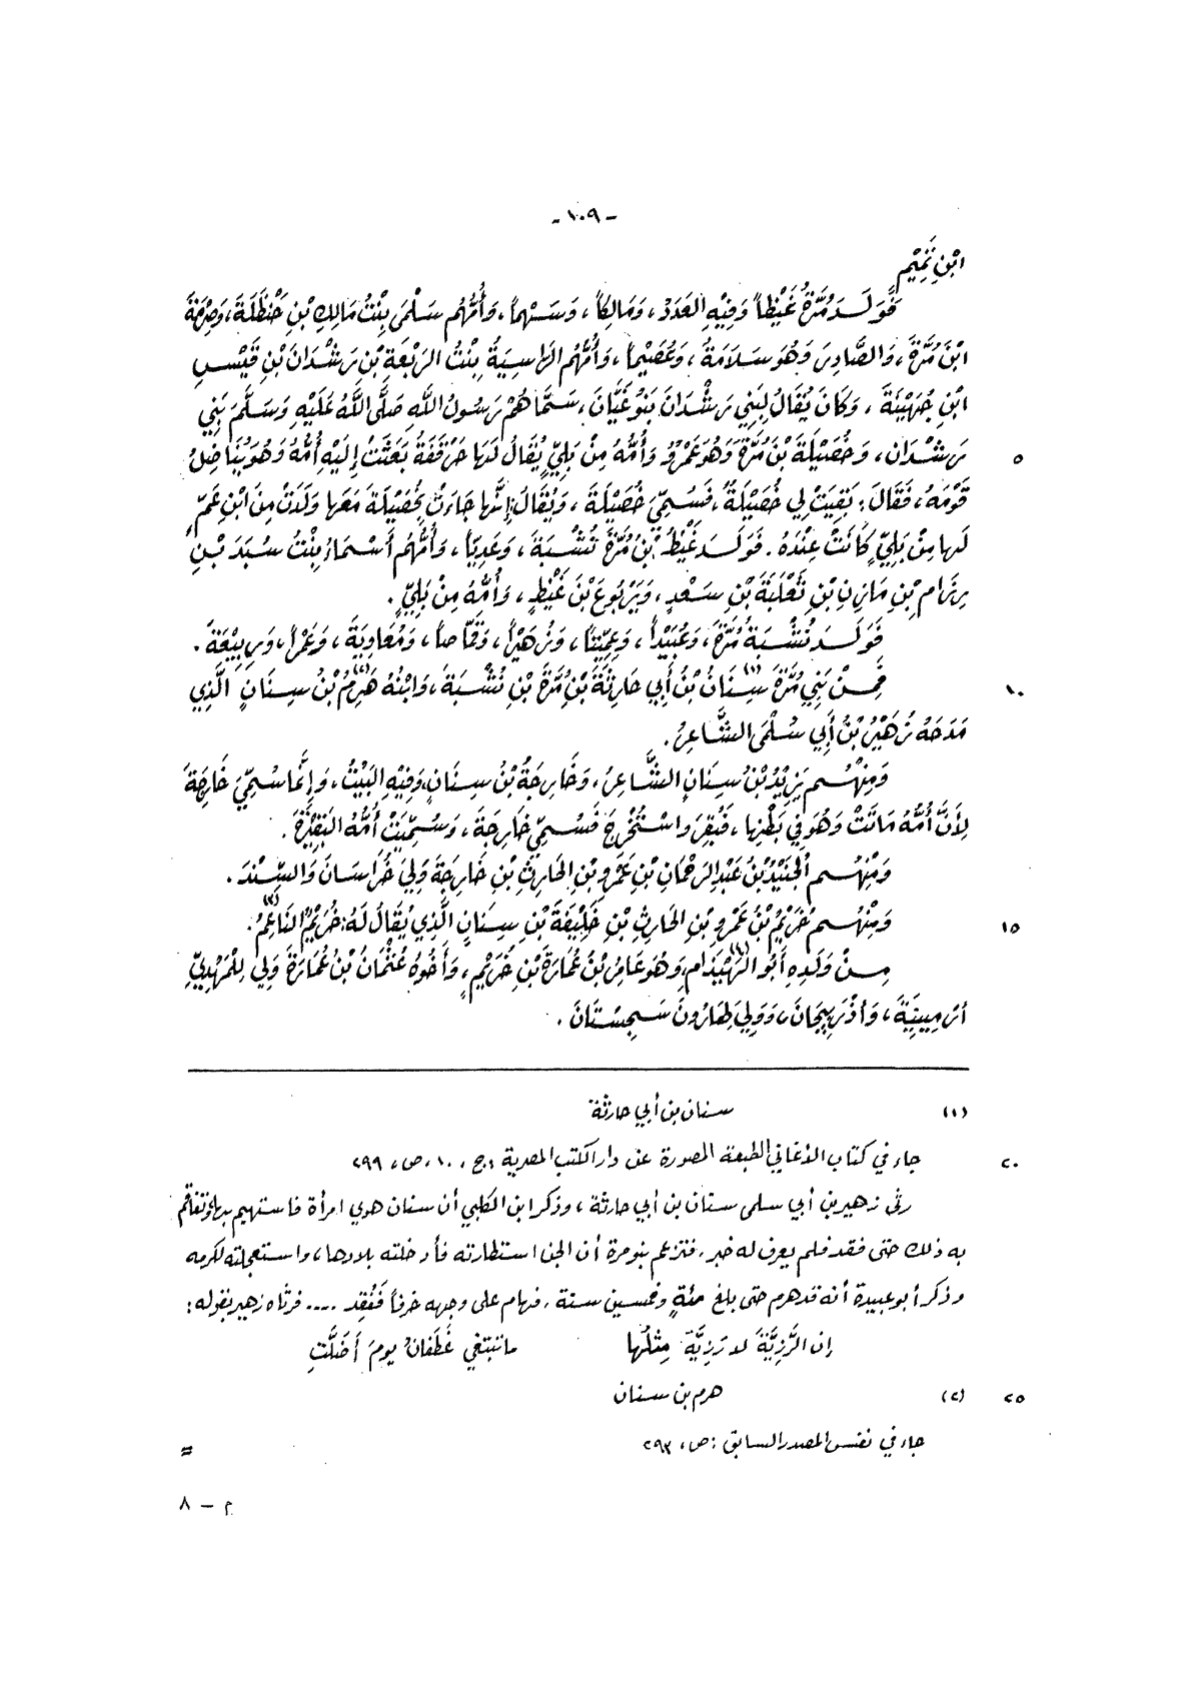 - ١٠٩ -
ابْنِ تَمِيْمٍ
فَوَلَدَ مُرَّةُ غَيْظاً وَفِيْهِ العَدَدُ، وَمَالِكاً، وَسَهْماً، وَأُمُّهُم سَلْمَى بِنْتُ مَالِكِ بْنِ حَنْظَلَةَ، وَصِرْمَةَ
ابْنَ مُرَّةَ، وَالصَّادِرَ وَهُوَ سَلَامَةُ، وَعُصَيْماً، وَأُمُّهُم الرَّاسِيَةُ بِنْتُ الرَّبَعَةِ بْنِ رَشْدَانَ بْنِ قَيْسِ
ابْنِ جُهَيْنَةَ، وَكَانَ يُقَالُ لِبَنِي رَشْدَانَ بَنُو غَيَّانَ، سَمَّاهُمْ رَسُولُ اللَّهِ صَلَّى اللَّهُ عَلَيْهِ وَسَلَّمَ بَنِي
٥ رَشْدَان، وَخُصَيْلَةَ بْنَ مُرَّةَ وَهُوَ عَمْرٌو وَأُمُّهُ مِنْ بَلِيٍّ يُقَالُ لَهَا حَرْقَفَةُ بَعَثَتْ إِلَيْهِ أُمُّهُ وَهُوَ يُنَاضِلُ
قَوْمَهُ، فَقَالَ: بَقِيَتْ لِي خُصَيْلَةٌ، فَسُمِّيَ خُصَيْلَةَ، وَيُقَالُ: إِنَّهَا جَاءَتْ بِخُصَيْلَةَ مَعَهَا وَلَدَتْ مِنَ ابْنِ عَمٍّ
لَهَا مِنْ بَلِيٍّ كَانَتْ عِنْدَهُ. فَوَلَدَ غَيْظُ بْنُ مُرَّةَ نُشْبَةَ، وَعَدِيّاً، وَأُمُّهُم أَسْمَاءُ بِنْتُ سُبَدَ بْنِ
رِزَامِ بْنِ مَازِنِ بْنِ ثَعْلَبَةَ بْنِ سَعْدٍ، وَيَرْبُوعَ بْنَ غَيْظٍ، وَأُمُّهُ مِنْ بَلِيٍّ.
فَوَلَدَ نُشْبَةُ مُرَّةَ، وَعُبَيْداً، وَزُهَيْراً، وَقَمَّاصاً، وَمُعَاوِيَةَ، وَعَمْراً، وَرَبِيْعَةَ.
١٠ فَمِنْ بَنِي مُرَّةَ سِنَانُ (١) بْنُ أَبِي حَارِثَةَ بْنِ مُرَّةَ بْنِ نُشْبَةَ، وَابْنُهُ هَرِمُ (٢) بْنُ سِنَانٍ الَّذِي
مَدَحَهُ زُهَيْرُ بْنُ أَبِي سُلْمَى الشَّاعِرُ.
وَمِنْهُم يَزِيْدُ بْنُ سِنَانٍ الشَّاعِرُ، وَخَارِجَةُ بْنُ سِنَانٍ، وَفِيْهِ البَيْتُ، وَإِنَّمَا سُمِّيَ خَارِجَةَ
لِأَنَّ أُمَّهُ مَاتَتْ وَهُوَ فِي بَطْنِهَا، فَبُقِرَ وَاسْتُخْرِجَ فَسُمِّيَ خَارِجَةَ، وَسُمِّيَتْ أُمُّهُ البَقِيْرَةَ.
وَمِنْهُم الجُنَيْدُ بْنُ عَبْدِ الرَّحْمَانِ بْنِ عَمْرِو بْنِ الحَارِثِ بْنِ خَارِجَةَ وَلِيَ خُرَاسَانَ وَالسِّنْدَ.
١٥ وَمِنْهُم خُرَيْمُ بْنُ عَمْرِو بْنِ الحَارِثِ بْنِ خَلِيْفَةَ بْنِ سِنَانٍ الَّذِي يُقَالُ لَهُ: خُرَيْمٌ النَّاعِمُ.
مِنْ وَلَدِهِ أَبُو الهَيْذَامِ، وَهُوَ عَامِرُ بْنُ عُمَارَةَ بْنِ خُرَيْمٍ، وَأَخُوهُ عُثْمَانُ بْنُ عُمَارَةَ وَلِيَ لِلْمَهْدِيِّ
أَرْمِيْنِيَةَ، وَأَذْرَبِيْجَانَ، وَوَلِيَ لِهَارُونَ سَجِسْتَانَ.
(١) سنان بن أبي حارثة
٢٠ جاء في كتاب الأغاني الطبعة المصورة عن دار الكتب المصرية، ج، ١٠، ص، ٢٩٩
رثى زهير بن أبي سلمى سنان بن أبي حارثة، وذكر ابن الكلبي أن سنان هوي امرأة فاستهيم بها وتفاقم
به ذلك حتى فقد فلم يعرف له خبر، فتزعم بنو مرة أن الجن استطارته فأدخلته بلادها، واستعجلته لكرمه
وذكر أبو عبيدة أنه قد هرم حتى بلغ مئةٍ وخمسين سنة، فهام على وجهه خرفاً فَفُقِد .... فرثاه زهير بقوله:
إن الرَّزِيَّةَ لا رَزِيَّةَ مِثْلُها ما تبتغي غَطَفانُ يومَ أَضَلَّتِ
٢٥ (٢) هرم بن سنان
جاء في نفس المصدر السابق: ص، ٢٩٣
=
م - ٨